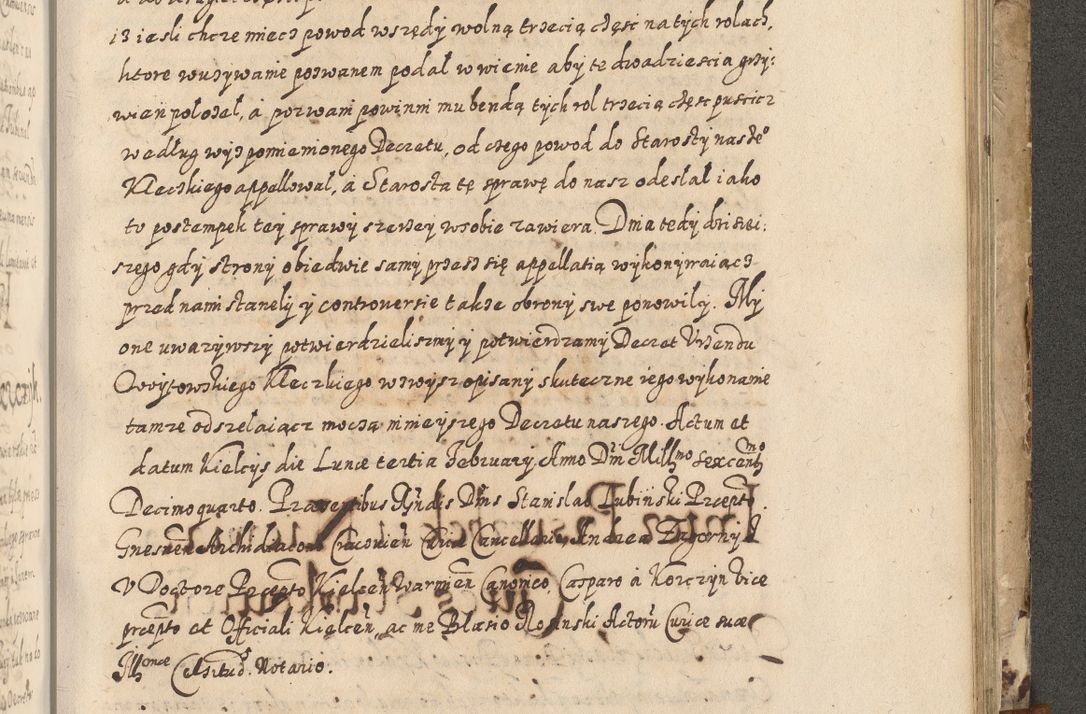 i3 iesli chcze miecz powod wszędy wolną trzecią część na tych rolach,
ktore wuzywanie pozwanem podal w wienie aby te dwadziescia grzy:
wien polozel, á pozwani powinni mu bendą tych rol trzecią częsc pusćicz
według wyzpomiemonego Decretu, od czego powod do Starosty nasze°
Kleczkiego appellowal, á Starosta tę sprawę do nasz odeslal iako
to postempek tey sprawy szerzey wsobie zawiera. Dnia tedy dzisiei:
szego gdy strony obiedwie samy przesz się appellatią wykonywaiącz
przed nami staneli y controversie takze obrony swe ponowily. My
one uwazywszy potwierdzielismy y potwierdzamy Decret Urzendu
Kleczkiego wzwysz opisany skuteczne iego wykonanie
tamze odszelaiącz moczą mnieyszego Decretu naszego. Actum et
datum Kielcys die Lunæ tertia February Anno Dni Millmo Sexcentmo
Decimo quarto. Præsentibus Rndis Dnis Stanislao Lubinski Præpto
Gnesnen Archidiacono Cracovien Curiæ Cancellario, Andrea
V Doctore Præpto Kielcen Warmien Canonico, Casparo á Korczyn Vice
præpto et Officiali Kielcen, ac me Blasio Rosinski Actoru Curiæ suæ
Illmæ Celsitud. Notario.